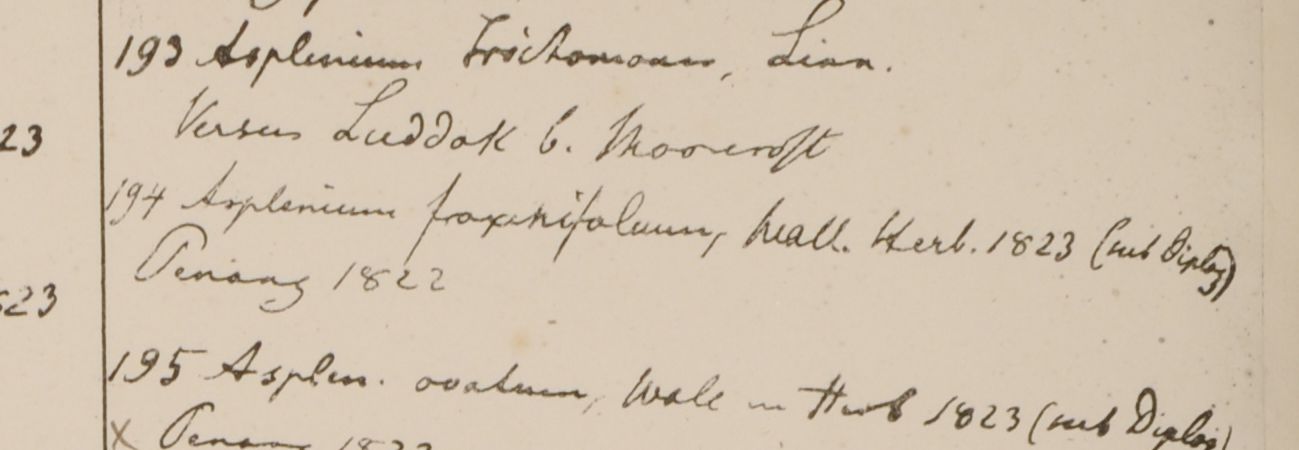 193 Asplenium Trichomanes, Linn.
23
Versus Luddak b. Moorcroft
194 Asplenium fraxinifolium, Wall. Herb. 1823 (sub Diplaz)
Penang 1822
23
195 Asplen. ovatum, Wall in Herb 1823 (sub Diplaz)
x Penang 1822